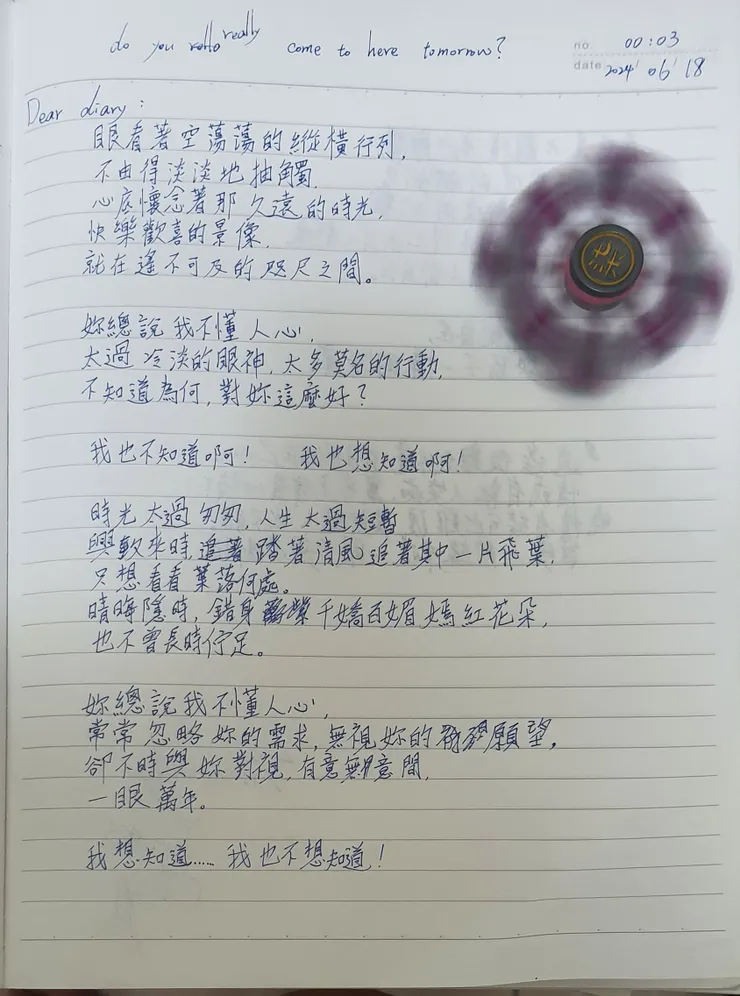 do you really come to here tomorrow?
no 00:03
date 2024' 06' 18
Dear diary:
眼看著空蕩蕩的縱橫行列,
不由得淡淡地抽觸,
心底懷念著那久遠的時光,
快樂歡喜的景像,
就在遙不可及的咫尺之間。
妳總說我不懂人心,
太過冷淡的眼神,太多莫名的行動,
不知道為何,對妳這麼好?
我也不知道啊! 我也想知道啊!
時光太過匆匆,人生太過短暫
興致來時,踏著清風追著其中一片飛葉,
只想看看葉落何處。
晴晦隱時,錯身千嬌百媚嫣紅花朵,
也不曾長時佇足。
妳總說我不懂人心,
常常忽略妳的需求,無視妳的願望,
卻不時與妳對視,有意無意間,
一眼萬年。
我想知道…… 我也不想知道!